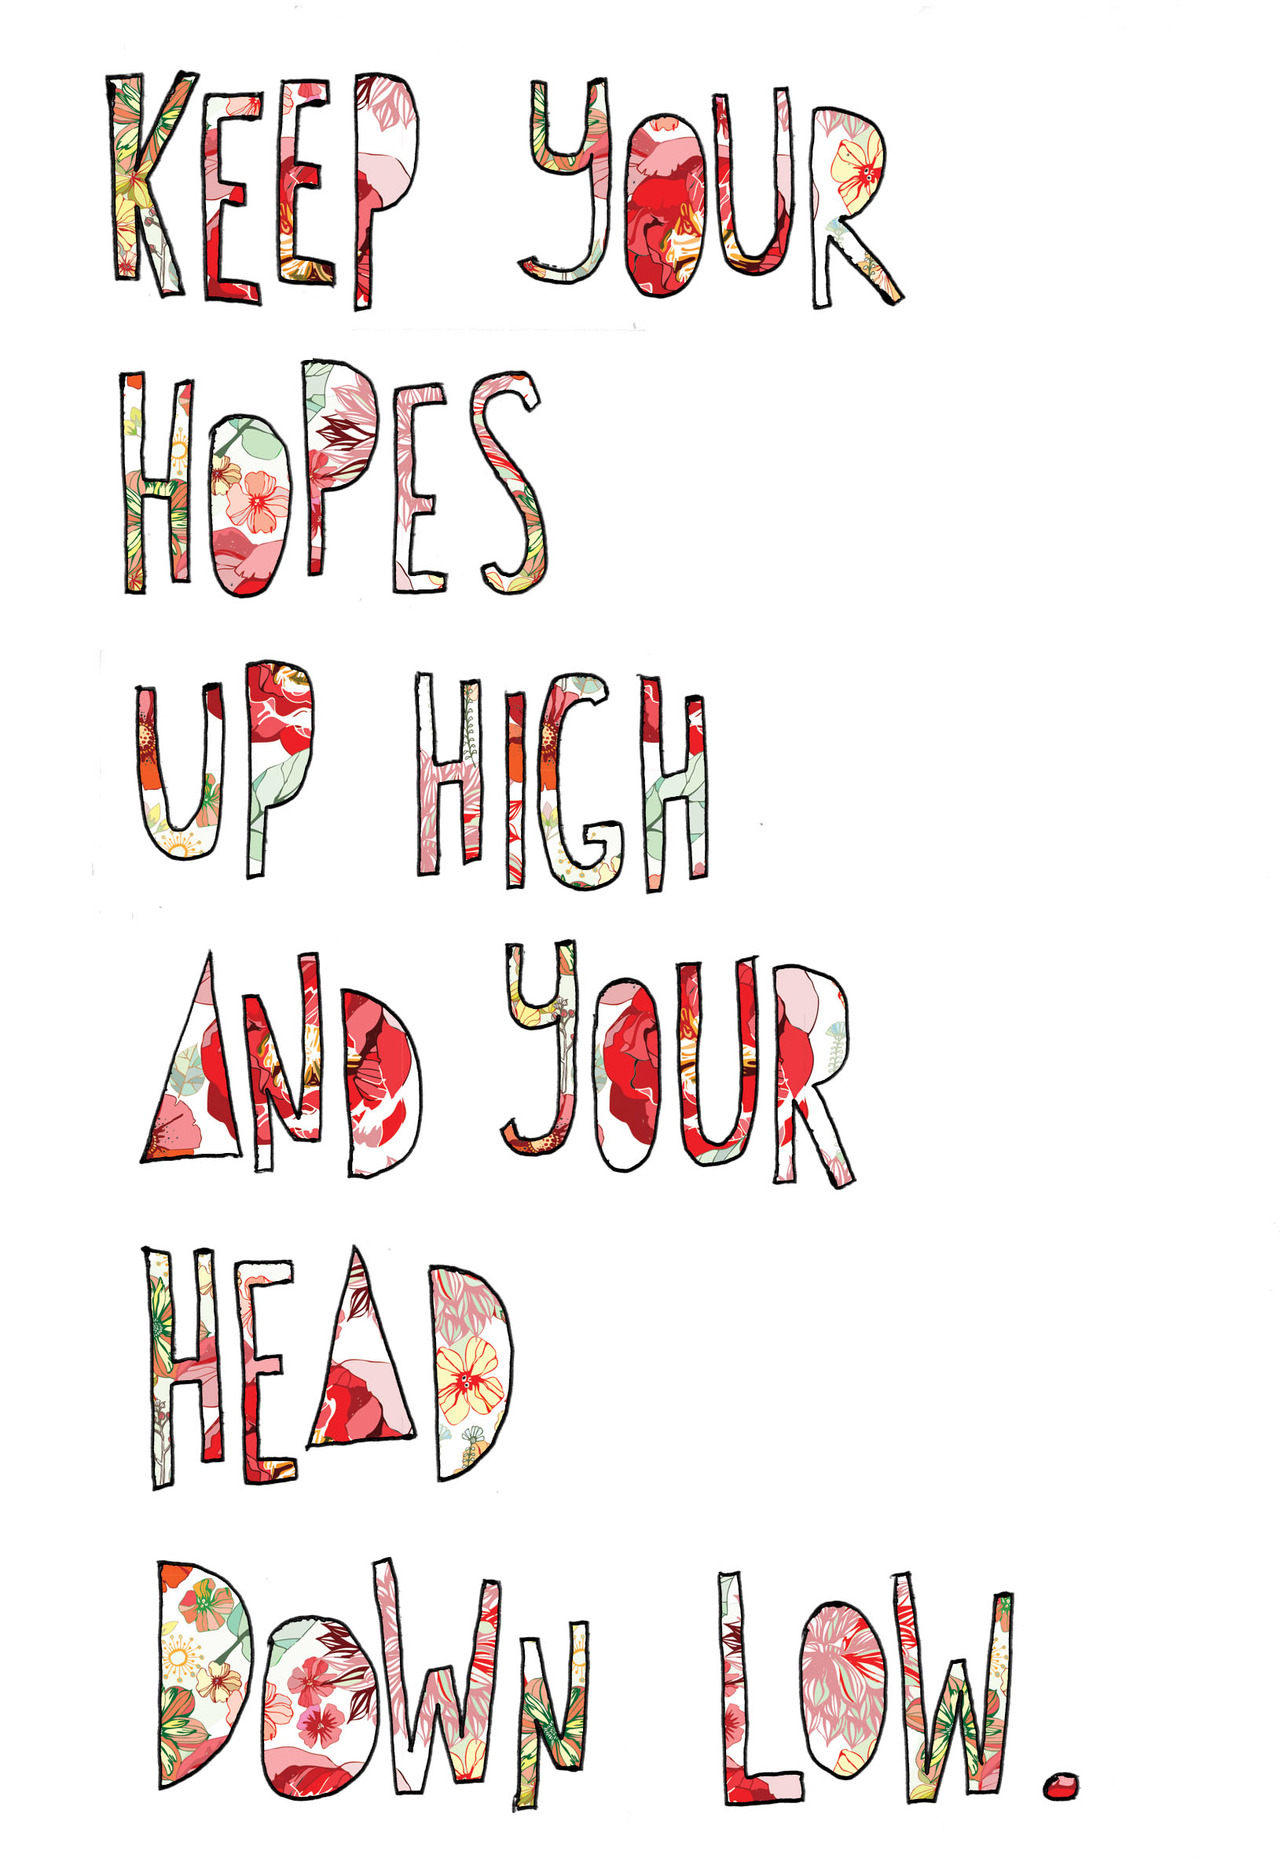 KEEP YOUR
HOPES
UP HIGH
AND YOUR
HEAD
DOWN LOW.